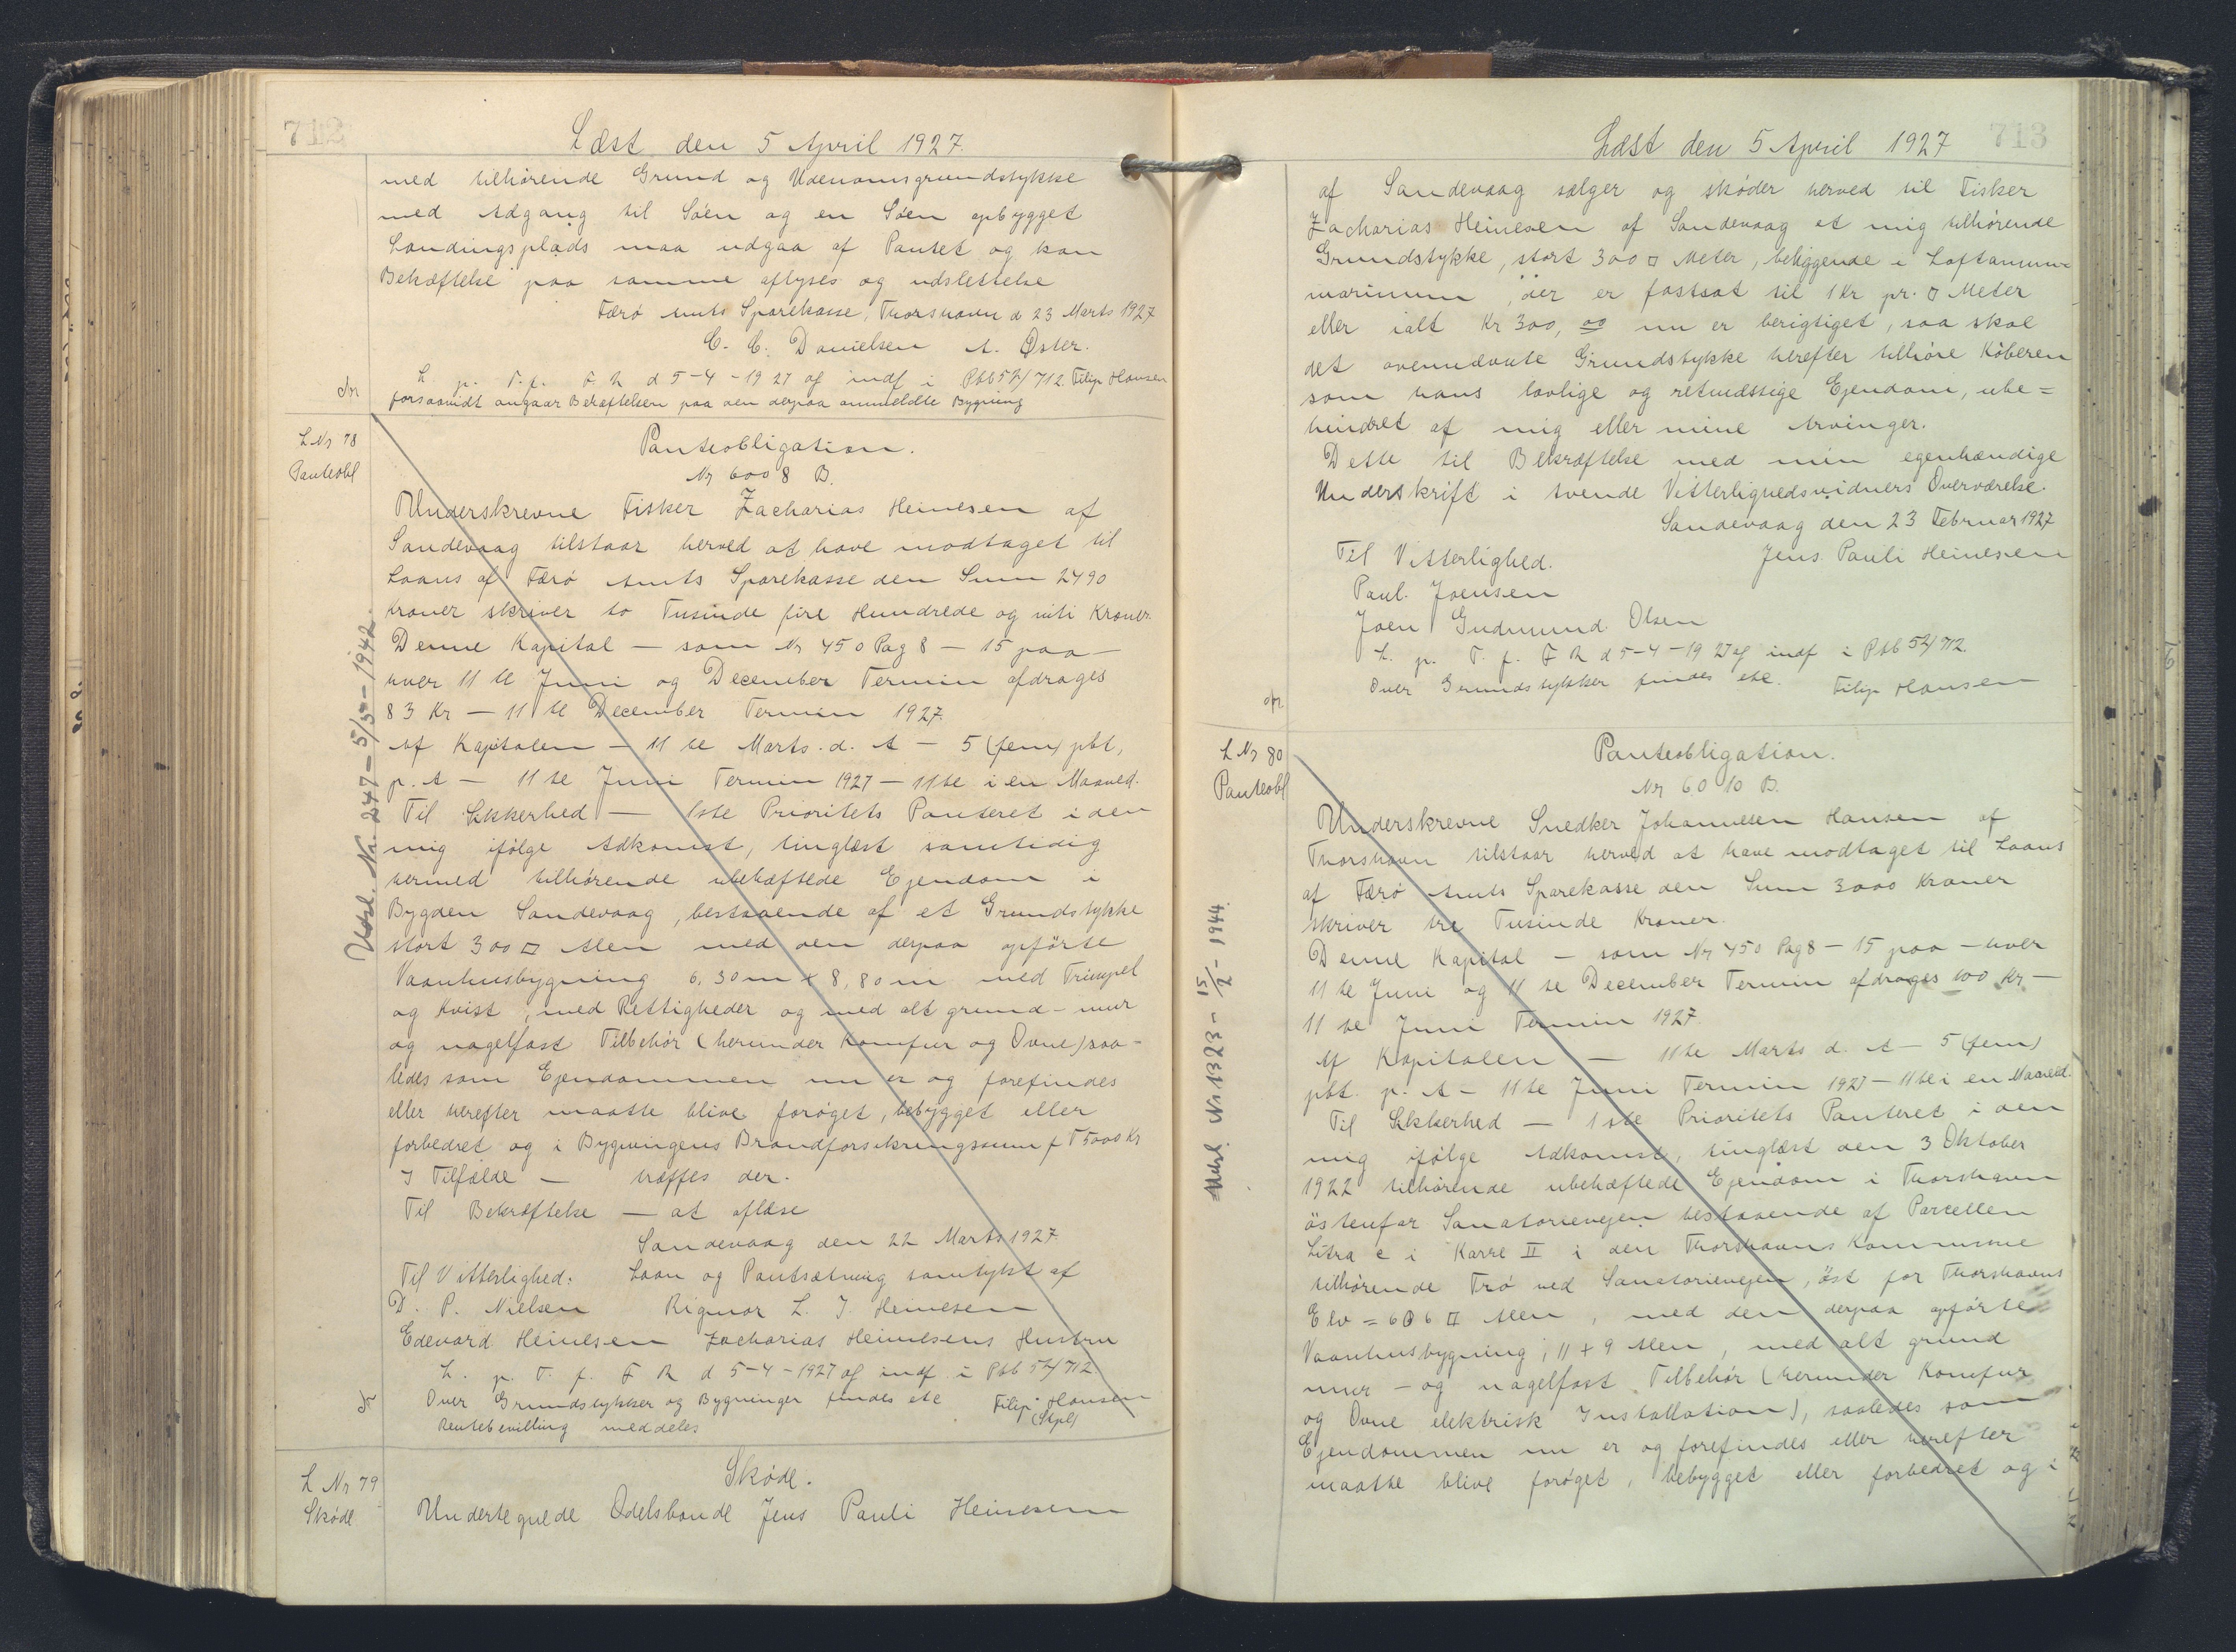 712
Læst den 5 April 1927.
med tilhørende Grund og Udenomsgrundstykke
med Adgang til Søen og en Søen opbygget
Landingsplads maa udgaa af Pantet og kan
Behæftelse paa samme aflyses og udslettelse
Færø Amts Sparekasse, Thorshavn d 23 Marts 1927
C. C. Danielsen A. Øster.
L. p. T. f. F. R d 5-4-1927 og indf i Pbb 52/712 Filip Hansen
forsaavidt angaar Behæftelsen paa den derpaa anmeldte Bygning
L Nr 78
Panteobl
Panteobligation.
Nr 6008 B.
Underskrevne Fisker Zacharias Heinesen af
Sandevaag tilstaar herved at have modtaget til
Laans af Færø Amts Sparekasse den Sum 2490
Kroner skriver to Tusinde fire Hundrede og niti Kroner.
Denne Kapital — som Nr 450 Pag 8 — 15 paa —
hver 11 te Juni og December Termin afdrages
83 Kr — 11 te December Termin 1927.
Af Kapitalen — 11 te Marts. d. A — 5 (fem) pbt,
p. A — 11 te Juni Termin 1927 — 11te i en Maaned.
Til Sikkerhed — 1ste Prioritets Panteret i den
mig ifølge Adkomst, tinglæst samtidig
hermed tilhørende ubehæftede Ejendom i
Bygden Sandevaag, bestaaende af et Grundstykke
stort 300 □ Alen med den derpaa opførte
Vaanhusbygning 6,30 m x 8,80 m med Trimpel
og Kvist, med Rettigheder og med alt grund- mur
og nagelfast Tilbehør (herunder Komfur og Ovne) saa-
ledes som Ejendommen nu er og forefindes
eller herefter maatte blive forøget, bebygget eller
forbedret og i Bygningens Brandforsikringssum f T 5000 Kr
I Tilfælde — træffes der.
Til Bekræftelse — at aflæse
Sandevaag den 22 Marts 1927.
Til Vitterlighed: Laan og Pantsætning samtykt af
D. P. Nielsen Rigmor L. J. Heinesen
Edevard Heinesen Zacharias Heinesens Hustru
L. p. T. f. F R d 5-4-1927 og indf i Pbb 52/712.
Over Grundstykker og Bygninger findes ete Filip Hansen
Rentebevilling meddeles (Stpl)
Udsl. Nr. 247 - 5/5 - 1942.
L Nr 79
Skøde
Skøde.
Undertegnede Odelsbonde Jens Pauli Heinesen
713
Læst den 5 April 1927
af Sandevaag sælger og skøder herved til Fisker
Zacharias Heinesen af Sandevaag et mig tilhørende
Grundstykke, stort 300 □ Meter, beliggende i
der er fastsat til 1 Kr pr. □ Meter
eller ialt Kr 300, 00 nu er berigtiget, saa skal
det ovennævnte Grundstykke herefter tilhøre Køberen
som hans lovlige og retmæssige Ejendom, ube=
hindret af mig eller mine Arvinger.
Dette til Bekræftelse med min egenhændige
Underskrift i tvende Vitterlighedsvidners Overværelse.
Sandevaag den 23 Februar 1927
Til Vitterlighed. Jens Pauli Heinesen
Paul. Joensen
Joen Gudmund. Olsen
L. p. T. f. F R d 5-4-1927 og indf i Pbb 52/712.
Over Grundstykker findes ete. Filip Hansen
L Nr 80
Panteobl
Panteobligation.
Nr 6010 B.
Underskrevne Snedker Johannesen Hansen af
Thorshavn tilstaar herved at have modtaget til Laans
af Færø Amts Sparekasse den Sum 3000 Kroner
skriver tre Tusinde Kroner.
Denne Kapital — som Nr 450 Pag 8 — 15 paa — hver
11 te Juni og 11 te December Termin afdrages 100 Kr —
11 te Juni Termin 1927.
Af Kapitalen — 11te Marts d. A — 5 (fem)
pbt. p. A — 11te Juni Termin 1927 — 11te i en Maaned.
Til Sikkerhed — 1ste Prioritets Panteret i den
mig ifølge Adkomst, tinglæst den 3 Oktober
1922 tilhørende ubehæftede Ejendom i Thorshavn
østenfor Sanatorievejen bestaaende af Parcellen
Litra c i Karre II i den Thorshavns Kommune
tilhørende Trø ved Sanatorievejen, øst for Thorshavns
Elv = 606 □ Alen, med den derpaa opførte
Vaanhusbygning, 11 + 9 Alen, med alt grund
mur - og nagelfast Tilbehør (herunder Komfur
og Ovne elektrisk Installation), saaledes som
Ejendommen nu er og forefindes eller herefter
maatte blive forøget, bebygget eller forbedret og i
Udsl. Nr. 1323 - 15/2 - 1944.